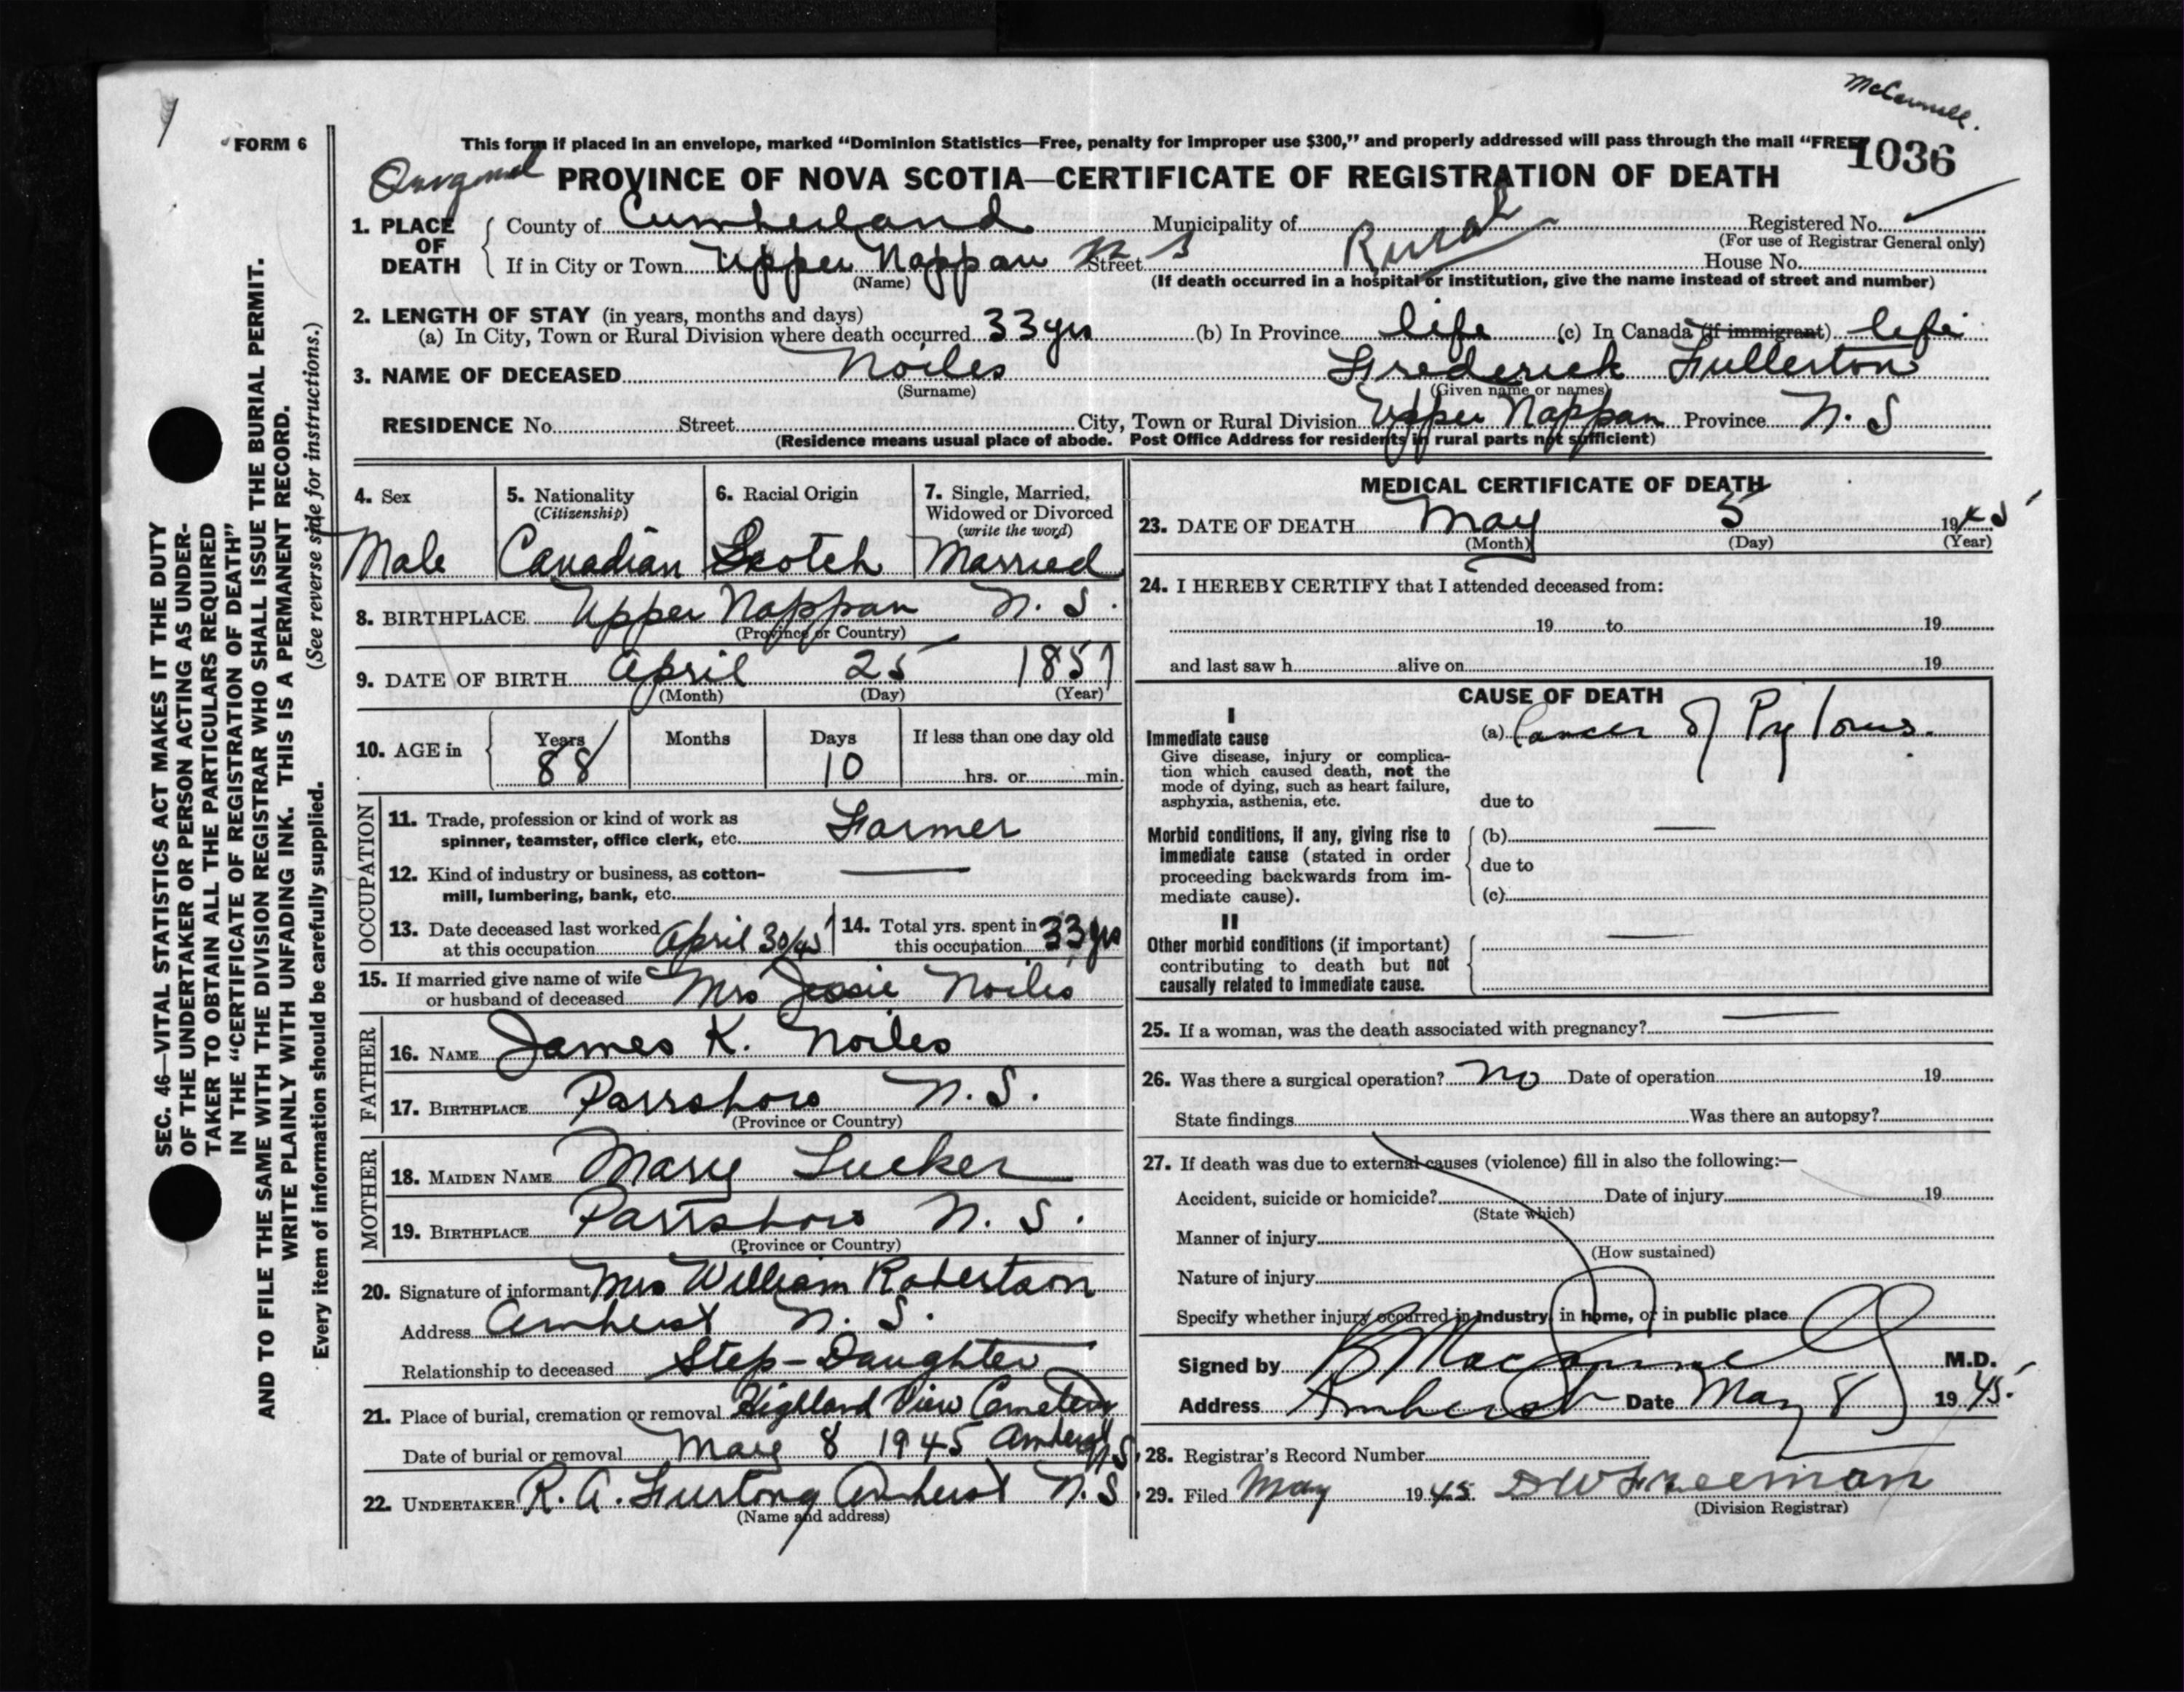 McConnell.
FORM 6
This form if placed in an envelope, marked "Dominion Statistics—Free, penalty for improper use $300," and properly addressed will pass through the mail "FREE
1036
PROVINCE OF NOVA SCOTIA—CERTIFICATE OF REGISTRATION OF DEATH
1. PLACE OF DEATH
County of Cumberland Municipality of Rural Registered No.
(For use of Registrar General only)
If in City or Town Upper Nappan N S Street House No.
(Name) (If death occurred in a hospital or institution, give the name instead of street and number)
2. LENGTH OF STAY (in years, months and days)
(a) In City, Town or Rural Division where death occurred 33 yrs (b) In Province life (c) In Canada (if immigrant) life
3. NAME OF DECEASED Noiles Frederick Fullerton
(Surname) (Given name or names)
RESIDENCE No. Street City, Town or Rural Division Upper Nappan Province N. S
(Residence means usual place of abode. Post Office Address for residents in rural parts not sufficient)
4. Sex
Male
5. Nationality
(Citizenship)
Canadian
6. Racial Origin
Scotch
7. Single, Married, Widowed or Divorced
(write the word)
Married
8. BIRTHPLACE Upper Nappan N. S.
(Province or Country)
9. DATE OF BIRTH April 25 1857
(Month) (Day) (Year)
10. AGE in Years Months Days If less than one day old
88 10 hrs. or min.
OCCUPATION
11. Trade, profession or kind of work as
spinner, teamster, office clerk, etc. Farmer
12. Kind of industry or business, as cotton-
mill, lumbering, bank, etc.
13. Date deceased last worked
at this occupation April 30/45
14. Total yrs. spent in
this occupation 33 yrs
15. If married give name of wife
or husband of deceased Mrs Jessie Noiles
FATHER
16. NAME James K. Noiles
17. BIRTHPLACE Parrsboro N. S.
(Province or Country)
MOTHER
18. MAIDEN NAME Mary Tucker
19. BIRTHPLACE Parrsboro N. S.
(Province or Country)
20. Signature of informant Mrs William Robertson
Address Amherst N. S.
Relationship to deceased Step-Daughter
21. Place of burial, cremation or removal Highland View Cemetery
Date of burial or removal May 8 1945 Amherst N S
22. UNDERTAKER R. A. Furlong Amherst N. S
(Name and address)
MEDICAL CERTIFICATE OF DEATH
23. DATE OF DEATH May 5 1945
(Month) (Day) (Year)
24. I HEREBY CERTIFY that I attended deceased from:
19 to 19
and last saw h alive on 19
CAUSE OF DEATH
I
Immediate cause
Give disease, injury or complica-
tion which caused death, not the
mode of dying, such as heart failure,
asphyxia, asthenia, etc.
(a) Cancer of Pylorus.
due to
Morbid conditions, if any, giving rise to
immediate cause (stated in order
proceeding backwards from im-
mediate cause).
(b)
due to
(c)
II
Other morbid conditions (if important)
contributing to death but not
causally related to immediate cause.
25. If a woman, was the death associated with pregnancy?
26. Was there a surgical operation? No Date of operation 19
State findings Was there an autopsy?
27. If death was due to external causes (violence) fill in also the following:—
Accident, suicide or homicide? Date of injury 19
(State which)
Manner of injury
(How sustained)
Nature of injury
Specify whether injury occurred in industry, in home, or in public place
Signed by M.D.
Address Amherst Date May 8 1945.
28. Registrar's Record Number
29. Filed May 1945. D W Freeman
(Division Registrar)
SEC. 46—VITAL STATISTICS ACT MAKES IT THE DUTY
OF THE UNDERTAKER OR PERSON ACTING AS UNDER-
TAKER TO OBTAIN ALL THE PARTICULARS REQUIRED
IN THE "CERTIFICATE OF REGISTRATION OF DEATH"
AND TO FILE THE SAME WITH THE DIVISION REGISTRAR WHO SHALL ISSUE THE BURIAL PERMIT.
WRITE PLAINLY WITH UNFADING INK. THIS IS A PERMANENT RECORD.
Every item of information should be carefully supplied. (See reverse side for instructions.)